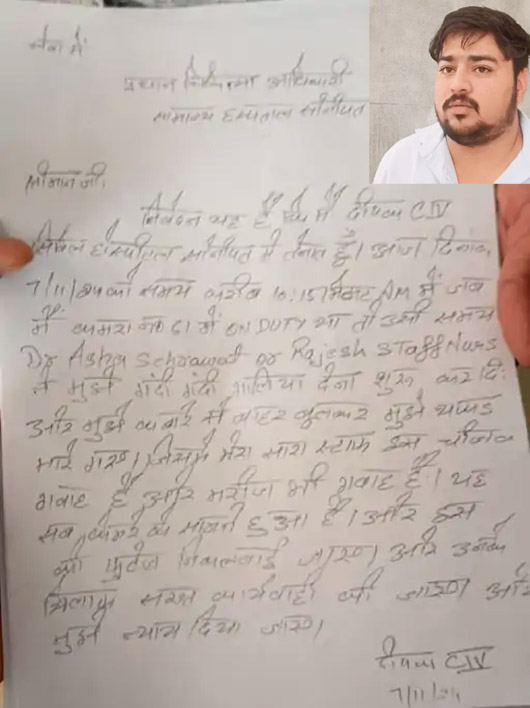 सेवा में
प्रधान चिकित्सा अधिकारी
सामान्य हस्पताल सोनीपत
श्रीमान जी,
निवेदन यह है कि मैं दीपक CIV
सिविल होस्पीटल सोनीपत में तैनात हूँ। आज दिनांक
7/11/24 को समय करीब 10:15 मिनट AM में जब
मैं कमरा no 61 में ON DUTY था तो उसी समय
Dr Asha Sehrawat or Rajesh Staff Nurs
ने मुझे गंदी गंदी गालिया देना शुरू कर दि
और मुझे बाहर बुलाकर मुझे थप्पड
मारे गए। जिसमे मेरा सारा स्टाफ इस चीज का
गवाह है और मरीज भी गवाह है। यह
सब कैमरे के सामने हुआ है। और इस
की फुटेज निकलवाई जाए। और उनके
खिलाफ सख्त कार्यवाही की जाए और
मुझे न्याय दिया जाए।
दीपक CIV
7/11/24